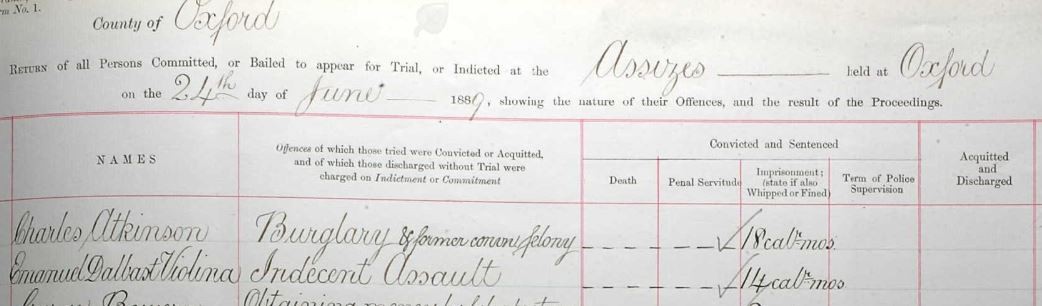 m No. 1.
County of Oxford
RETURN of all Persons Committed, or Bailed to appear for Trial, or Indicted at the Assizes held at Oxford
on the 24th day of June 1889, showing the nature of their Offences, and the result of the Proceedings.
NAMES
Offences of which those tried were Convicted or Acquitted,
and of which those discharged without Trial were
charged on Indictment or Commitment
Convicted and Sentenced
Death
Penal Servitude
Imprisonment;
(state if also
Whipped or Fined)
Term of Police
Supervision
Acquitted
and
Discharged
Charles Atkinson Burglary & former conv: felony 18 calr mos
Emanuel Dalbast Violina Indecent Assault 14 calr mos
Obtaining